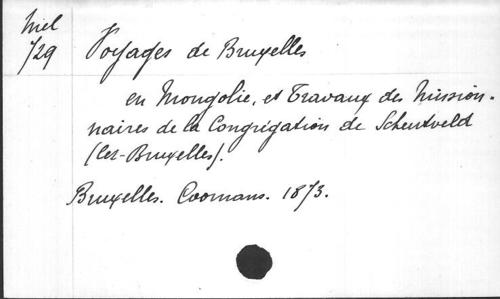 Miel
729
Voyages de Bruxelles
en Mongolie, et Travaux des Mission-
naires de la Congrégation de Scheutveld
(lez-Bruxelles).
Bruxelles. Coomans. 1873.